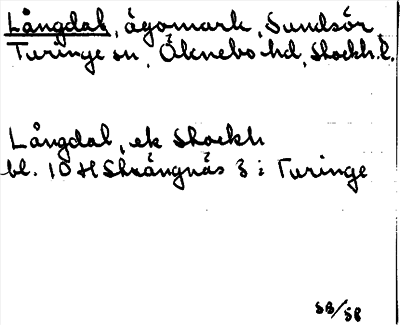 Långdal, ägomark, Sundsör,
Turinge sn, Öknebo hd, Stockh.l.
Långdal, ek Stockh
bl. 10 H Strängnäs 3 i Turinge
58/58